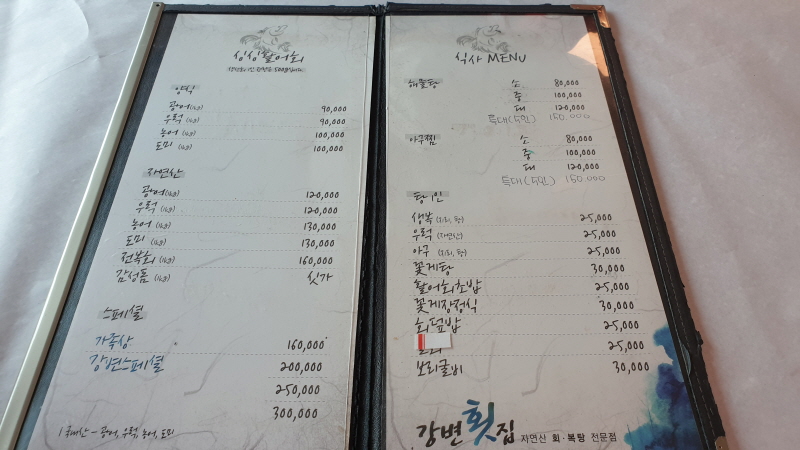 싱싱활어회
양식
광어(1kg) 90,000
우럭(1kg) 90,000
농어(1kg) 100,000
도미(1kg) 100,000
자연산
광어(1kg) 120,000
우럭(1kg) 120,000
농어(1kg) 130,000
도미(1kg) 130,000
전복회(1kg) 160,000
감성돔(1kg) 싯가
스페셜
가족상 160,000
강변스페셜 200,000
250,000
300,000
광어, 우럭, 농어, 도미
식사 MENU
해물탕 소 80,000
중 100,000
대 120,000
특대(5인) 150,000
아구찜 소 80,000
중 100,000
대 120,000
특대(5인) 150,000
단체1인
생복(지리, 탕) 25,000
우럭(자연산) 25,000
아구(지리, 탕) 25,000
꽃게탕 30,000
활어회초밥 25,000
꽃게장정식 30,000
회덮밥 25,000
25,000
보리굴비 30,000
강변횟집 자연산 회·복탕 전문점